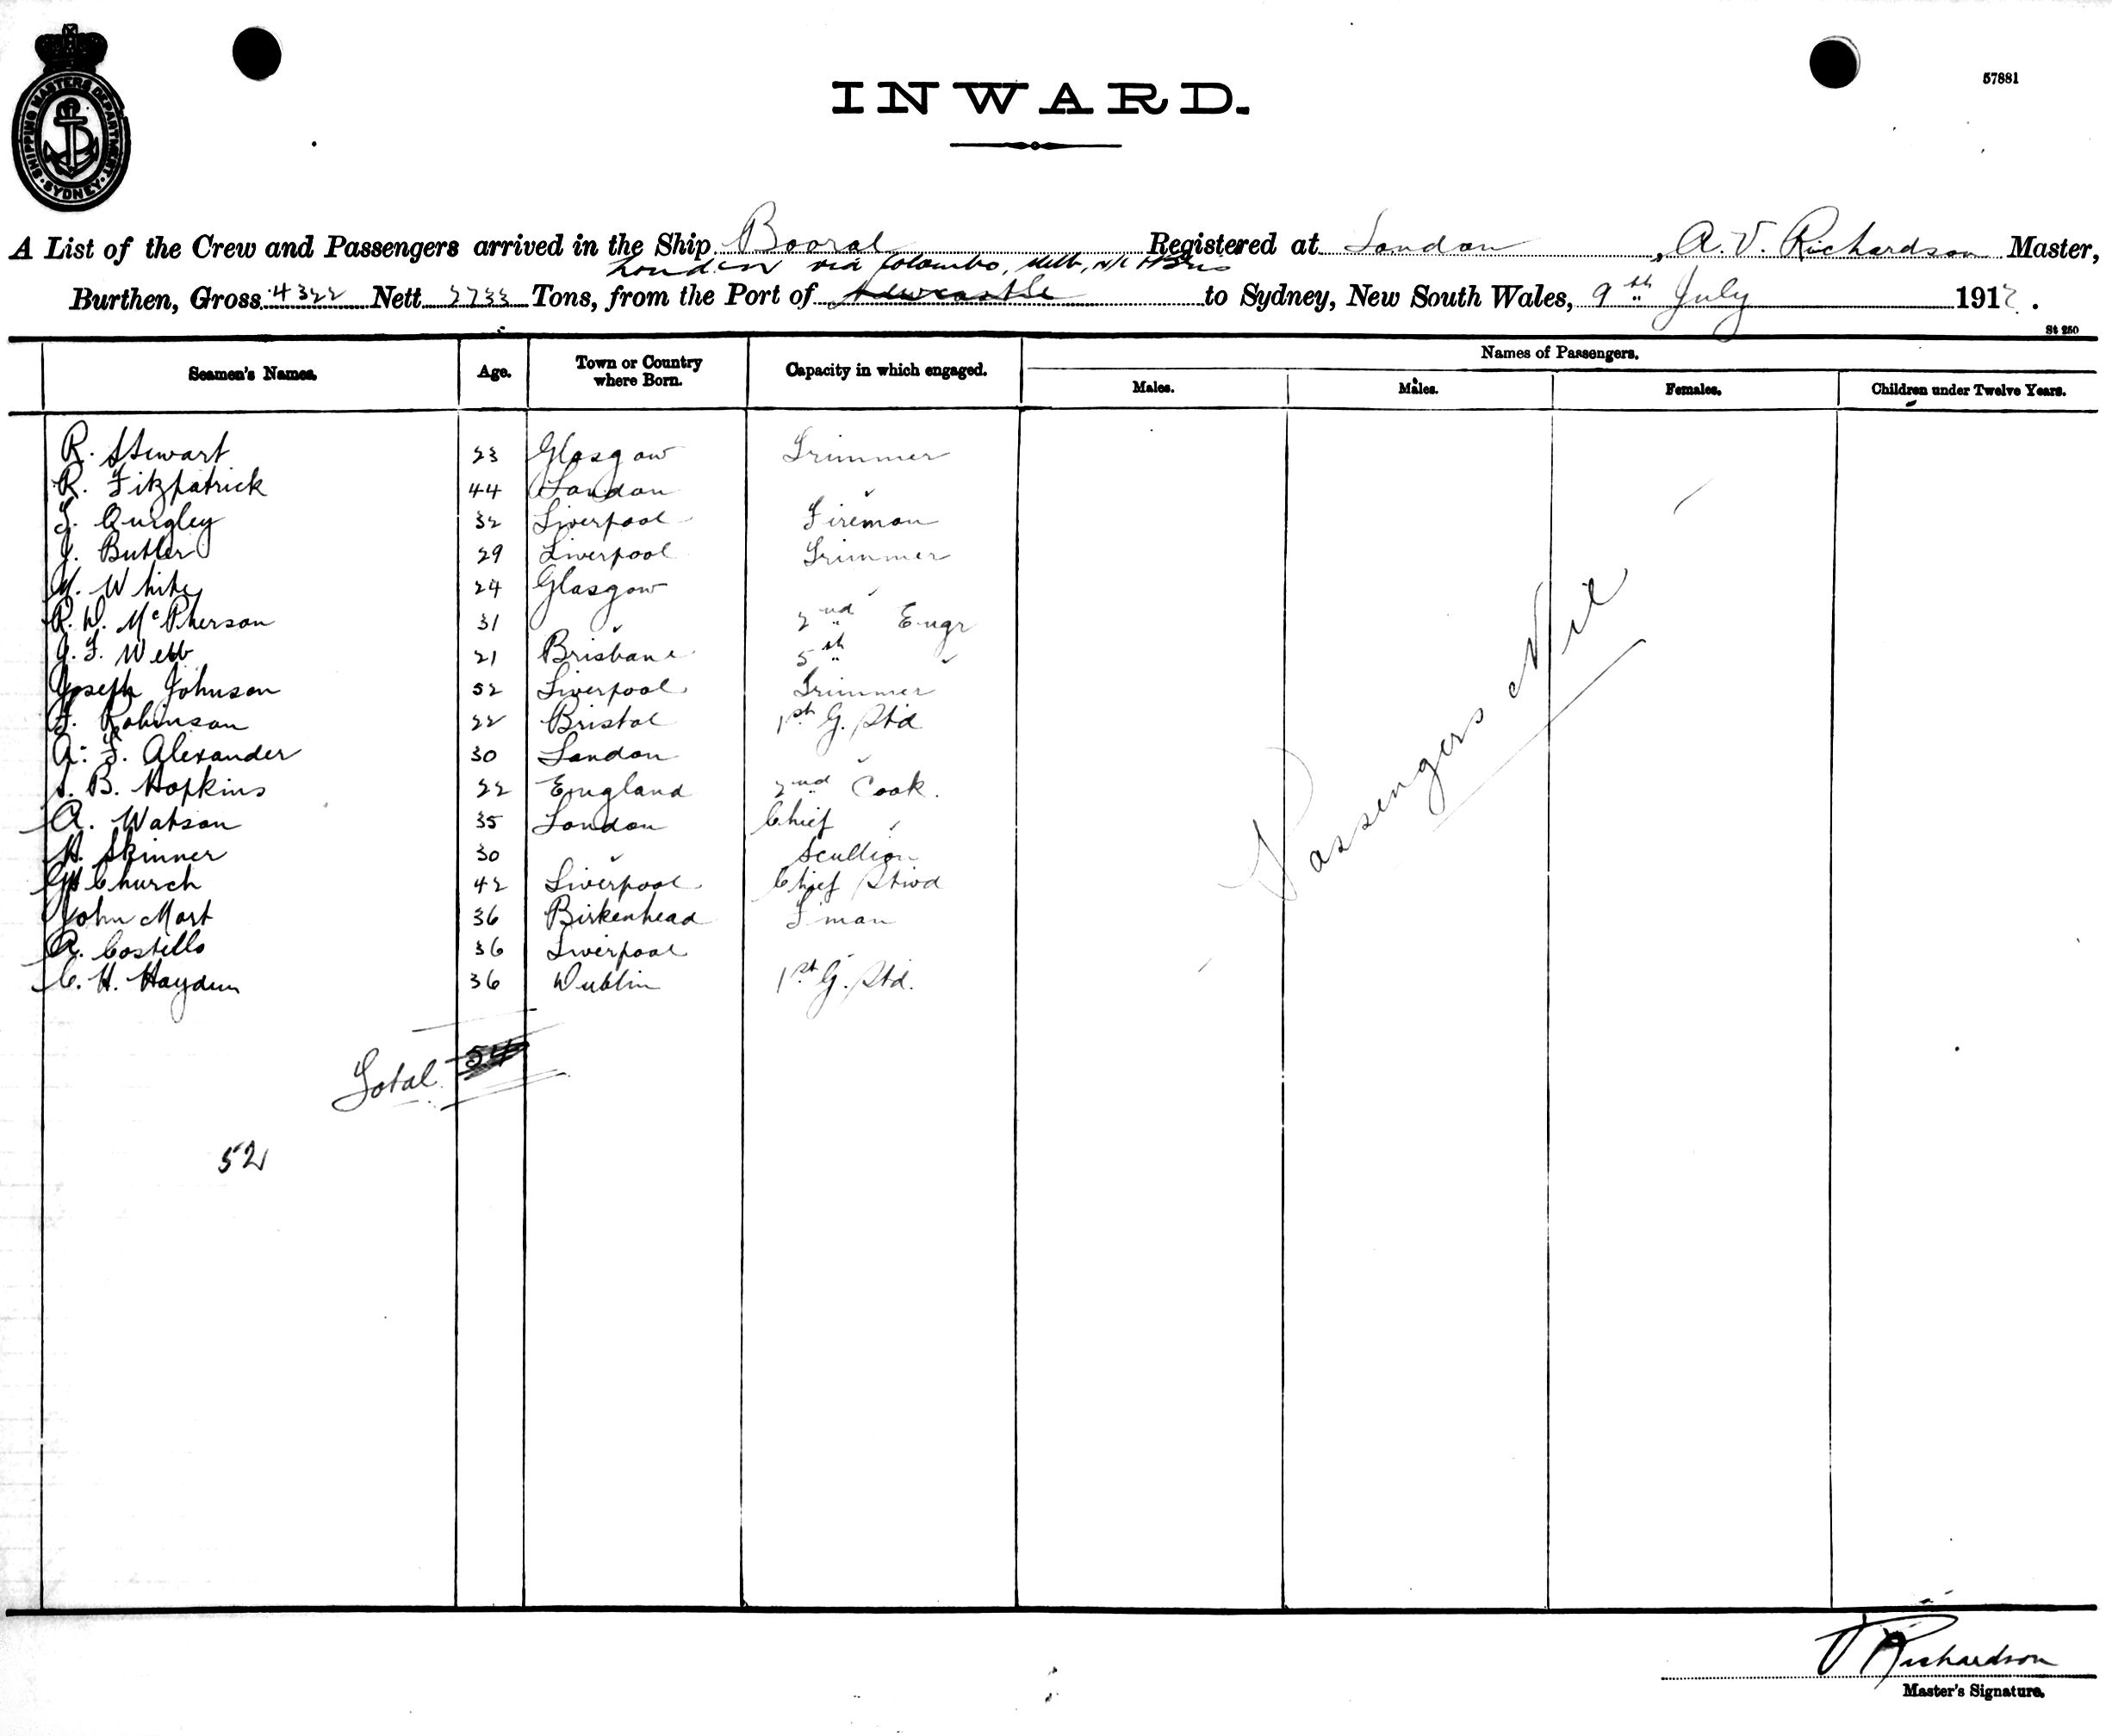 SHIPPING MASTERS DEPARTMENT
SYDNEY
57881
INWARD.
A List of the Crew and Passengers arrived in the Ship Booral Registered at London, A. V. Richardson Master,
London via Colombo, Melb, N/C
Burthen, Gross 4322 Nett 2733 Tons, from the Port of Newcastle to Sydney, New South Wales, 9th July 1912.
St 250
Seamen's Names. Age. Town or Country where Born. Capacity in which engaged. Names of Passengers.
Males. Males. Females. Children under Twelve Years.
R. Stewart 23 Glasgow Trimmer
R. Fitzpatrick 44 London "
Qurgley 32 Liverpool Fireman
J. Butler 29 Liverpool Trimmer
White 24 Glasgow "
R. D. McPherson 31 " 2nd Engr
J. F. Webb 21 Brisbane 5th "
Joseph Johnson 52 Liverpool Trimmer
F. Robinson 22 Bristol 1st G. Std
A. F. Alexander 30 London "
B. Hopkins 22 England 2nd Cook.
A. Watson 35 London Chief "
H. Skinner 30 " Scullion
Church 42 Liverpool Chief Stwd
John Mort 36 Birkenhead F man
A. Costello 36 Liverpool "
C. H. Hayden 36 Dublin 1st G. Std.
Passengers Nil
Total 54
52
Richardson
Master's Signature.